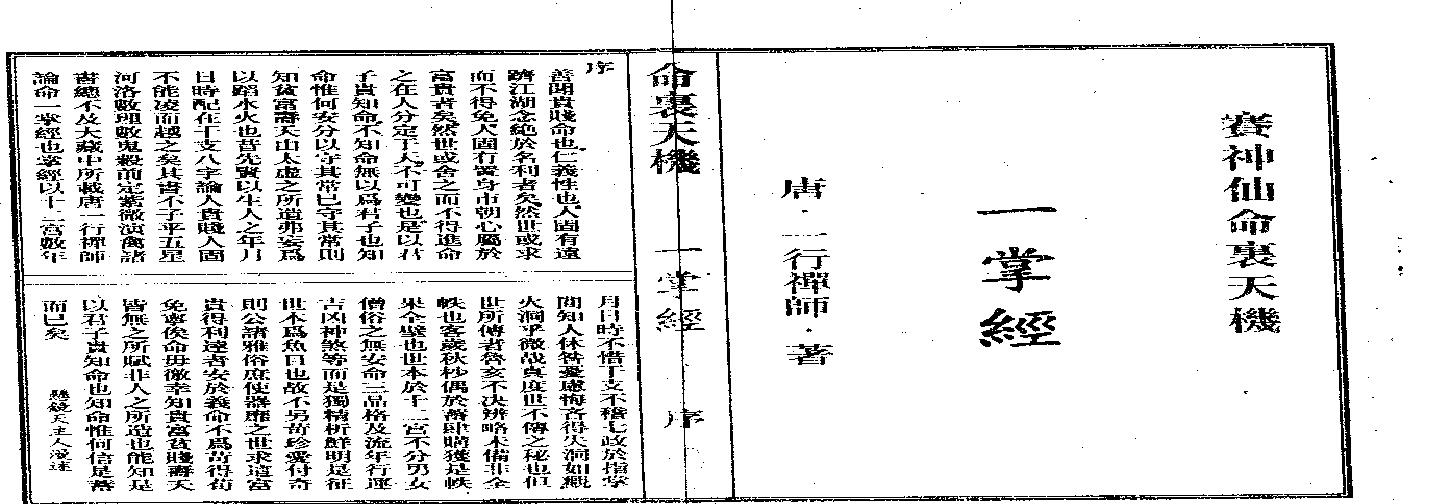 賽神仙命裏天機
一掌經
唐·一行禪師·著
命裏天機　一掌經　序
序
善聞貴賤命也仁義性也人固有遠
躋江湖念絶於名利者矣然世或求
而不得免人固有置身市朝心屬於
富貴者矣然世或舍之而不得進命
之在人分定于人不可變也是以君
子貴知命不知命無以爲君子也知
命惟何安分以守其常已守其常則
知貧富壽夭由太虛之所造弗妄爲
以蹈水火也昔先賢以生人之年月
日時配在干支八字論人貴賤人固
不能凌而越之矣其書不子平五星
河洛數理數鬼穀前定紫微演禽諸
書總不及大藏中所載唐一行禪師
論命一掌經也掌經以十二宮數年
月日時不惜干支不稽七政於指掌
間知人休咎憂慮悔吝得失洞如觀
火洞乎微哉真度世不傳之秘也但
世所傳者魯亥不决辨略未備非全
帙也客歲秋杪偶於舊肆購獲是帙
果全璧也世本於十二宮不分男女
僧俗之無安命三品格及流年行運
吉凶神煞等而是獨精析鮮明是征
世本爲魚目也故不另苛珍愛付奇
則公諸雅俗庶使器靡之世求這富
貴得利達者安於義命不爲苟得苟
免寧俟命毋徼幸知貴富貧賤壽夭
皆無之所賦非人之所造也能知是
以君子貴知命也知命惟何信是蓄
而已矣
懸鏡天主人漫述